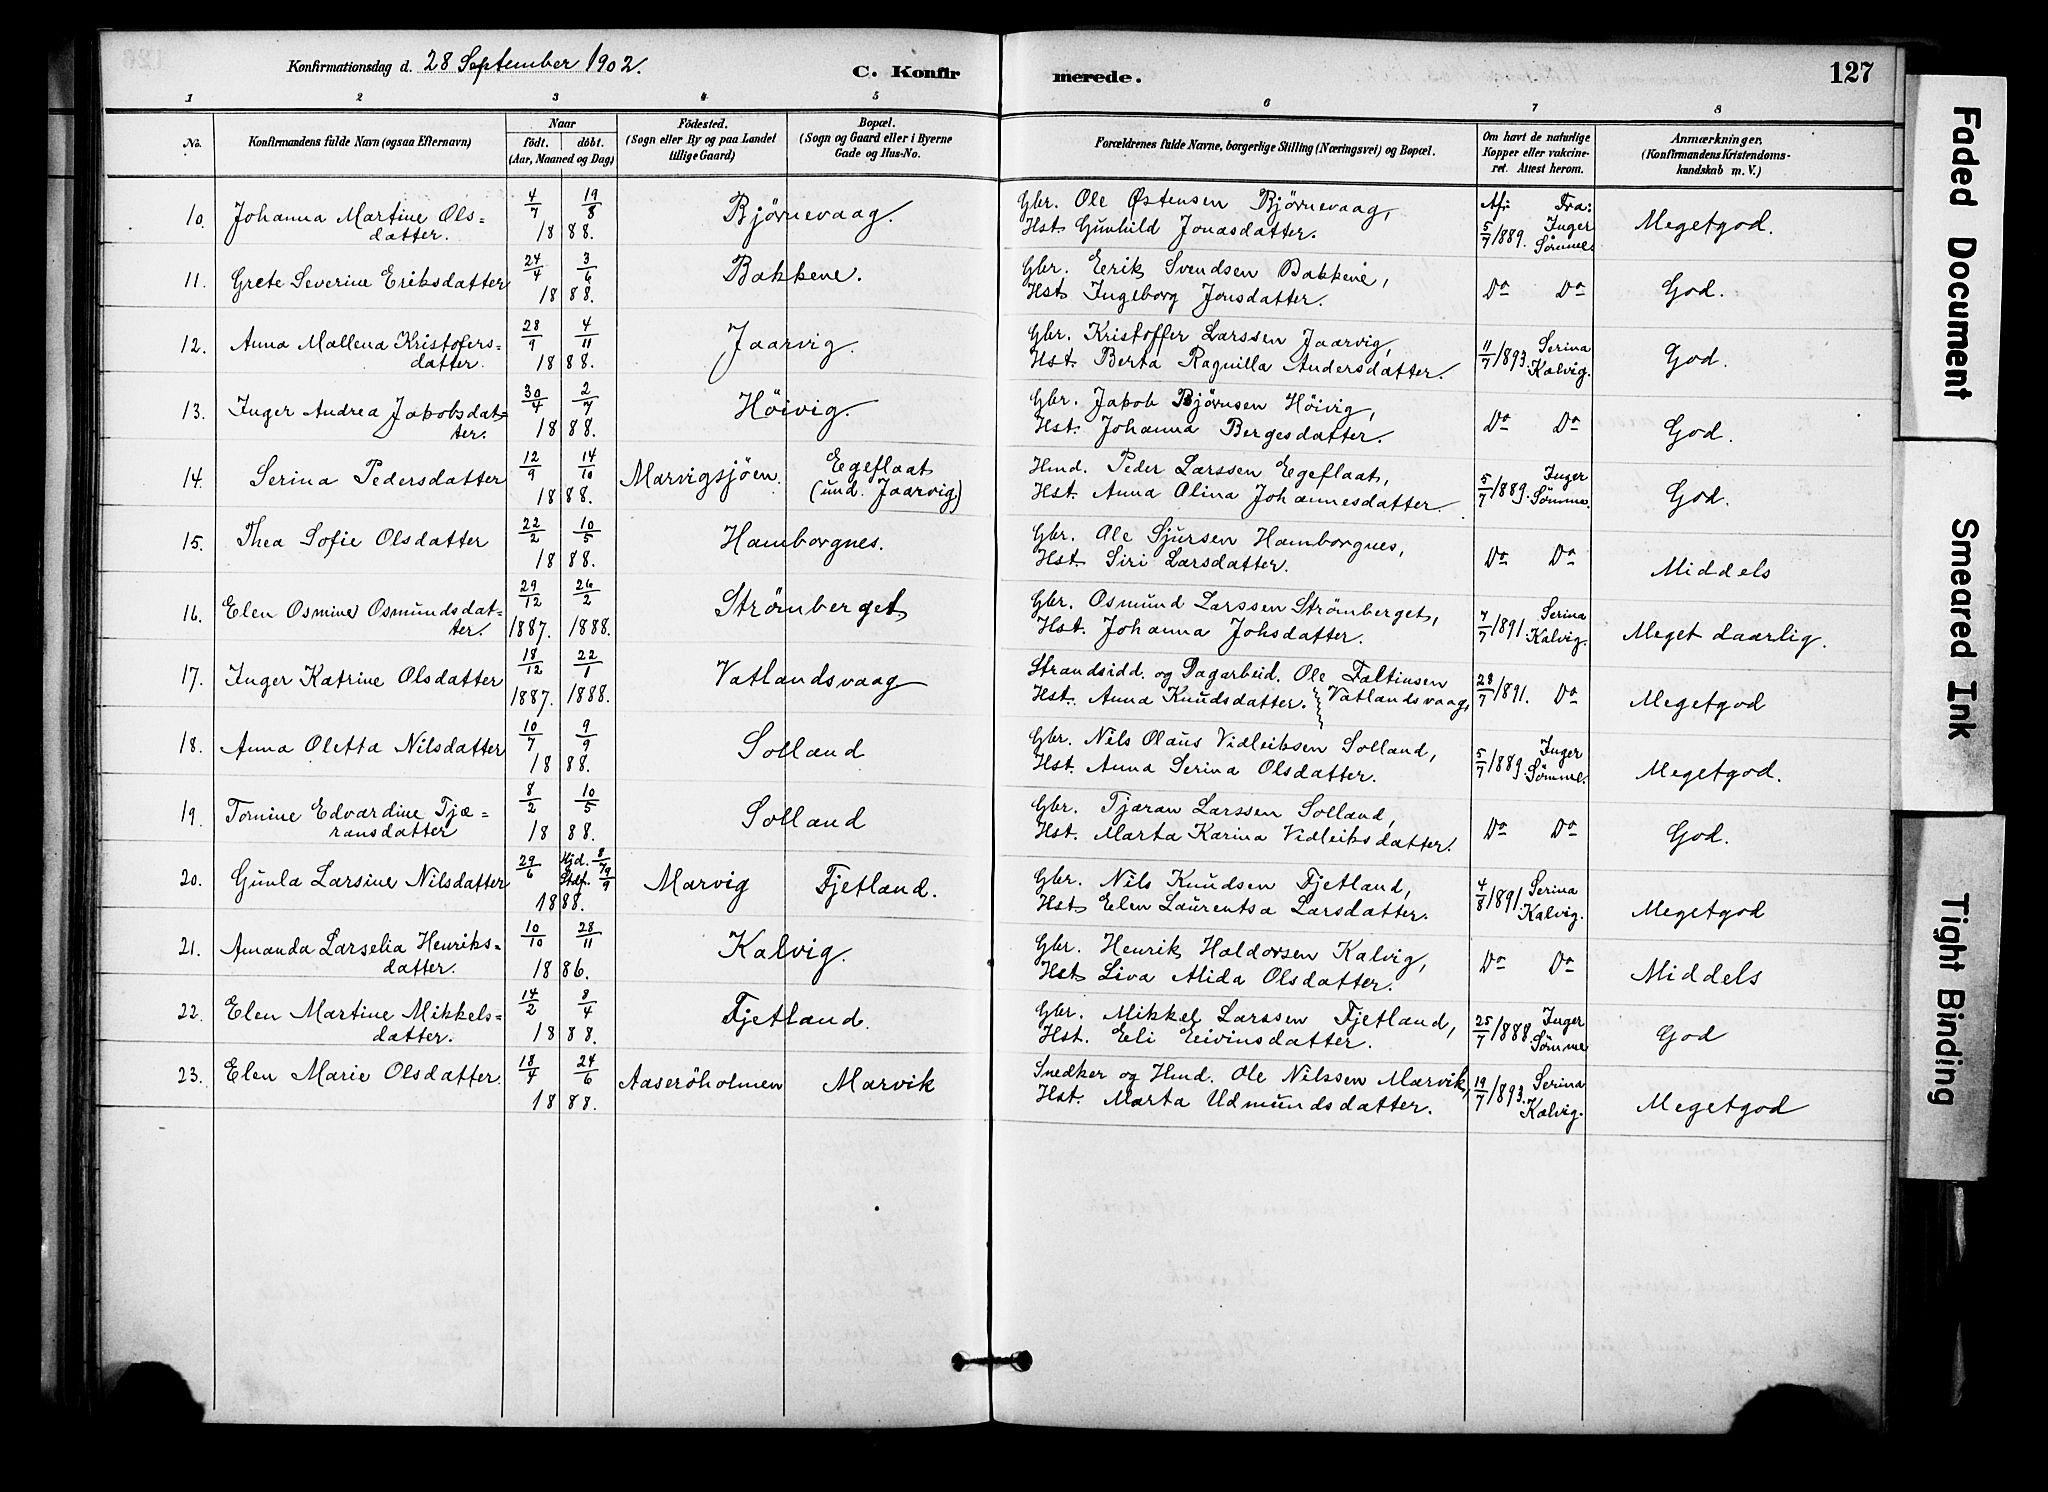 Konfirmationsdag d. 28 September 1902. C. Konfirmerede. 127
1 2 3 4 5 6 7 8
No. Konfirmandens fulde Navn (ogsaa Efternavn) Naar født. døbt. (Aar, Maaned og Dag) Fødested. (Sogn eller By og paa Landet tillige Gaard) Bopæl. (Sogn og Gaard eller i Byerne Gade og Hus-No. Forældrenes fulde Navne, borgerlige Stilling (Næringsvei) og Bopæl. Om havt de naturlige Kopper eller vakcineret. Attest herom. Anmærkninger, (Konfirmandens Kristendomskundskab m. V.)
10. Johanna Martine Ols= 4/7 19/8 Bjørnevaag. Gbr. Ole Østensen Bjørnevaag, Af: Fra:
datter. 1888. Hst Gunhild Jonasdatter. 5/7 1889. Inger Sømme. Megetgod.
11. Grete Severine Eriksdatter 24/4 3/6 Bakkene. Gbr. Eerik Svendsen Bakkene,
1888. Hst Ingeborg Jonsdatter. Do Do God.
12. Anna Mallena Kristofers= 28/9 4/11 Jaarvig. Gbr. Kristoffer Larssen Jaarvig,
datter. 1888. Hst. Berta Ragnilla Andersdatter. 11/7 1893. Serina Kalvig. God.
13. Inger Andrea Jakobsdat= 30/4 2/7 Höivig. Gbr. Jakob Bjørnsen Höivig,
ter. 1888. Hst. Johanna Bergesdatter. Do Do God.
14. Serina Pedersdatter 12/9 14/10 Marvigsjöen. Egeflaat Hmd. Peder Larssen Egeflaat,
1888. (und. Jaarvig) Hst. Anna Olina Johannesdatter 5/7 1889. Inger Sömme. God.
15. Thea Sofie Olsdatter 22/2 10/5 Hamborgnes. Gbr. Ole Sjursen Hamborgnes,
1888. Hst. Siri Larsdatter. Do Do Middels
16. Elen Osmine Osmundsdat= 29/12 26/2 Strømberget Gbr. Osmund Larssen Strømberget,
ter. 1887. 1888. Hst. Johanna Johsdatter. 7/7 1891. Serina Kalvig. Meget daarlig.
17. Inger Katrine Olsdatter 18/12 22/1 Vatlandsvaag Strandsidd. og Dagarbeid. Ole Faltinsen
1887. 1888. Hst. Anna Knudsdatter. Vatlandsvaag, 28/7 1891. Do Megetgod
18. Anna Oletta Nilsdatter 10/7 9/9 Solland Gbr. Nils Olaus Vidleiksen Solland,
1888. Hst. Anna Serina Olsdatter. 5/7 1889. Inger Sømme. Megetgod.
19. Tornine Edvardine Tjæ= 8/2 10/5 Solland Gbr. Tjæran Larssen Solland,
ransdatter 1888. Hst. Marta Karina Vidleiksdatter. Do Do God.
20. Gunla Larsine Nilsdatter 29/6 Hjd. 8/7 Stdf. 9/9 Marvig Fjetland. Gbr. Nils Knudsen Fjetland,
1888. Hst Elen Laurentsa Larsdatter. 4/8 1891. Serina Kalvig. Megetgod
21. Amanda Larselia Henriks= 10/10 28/11 Kalvig. Gbr. Henrik Haldorsen Kalvig,
datter. 1886. Hst Liva Alida Olsdatter. Do Do Middels
22. Elen Martine Mikkels= 14/2 8/4 Fjetland. Gbr. Mikkel Larssen Fjetland,
datter. 1888. Hst. Eli Eivinsdatter. 25/7 1888. Inger Sømme God
23. Elen Marie Olsdatter. 18/4 24/6 Aaseröholmen Marvik Snedker og Hmd. Ole Nilssen Marvik,
1888. Hst. Marta Udmundsdatter. 19/7 1893. Serina Kalvig. Megetgod
Faded Document
Smeared Ink
Tight Binding